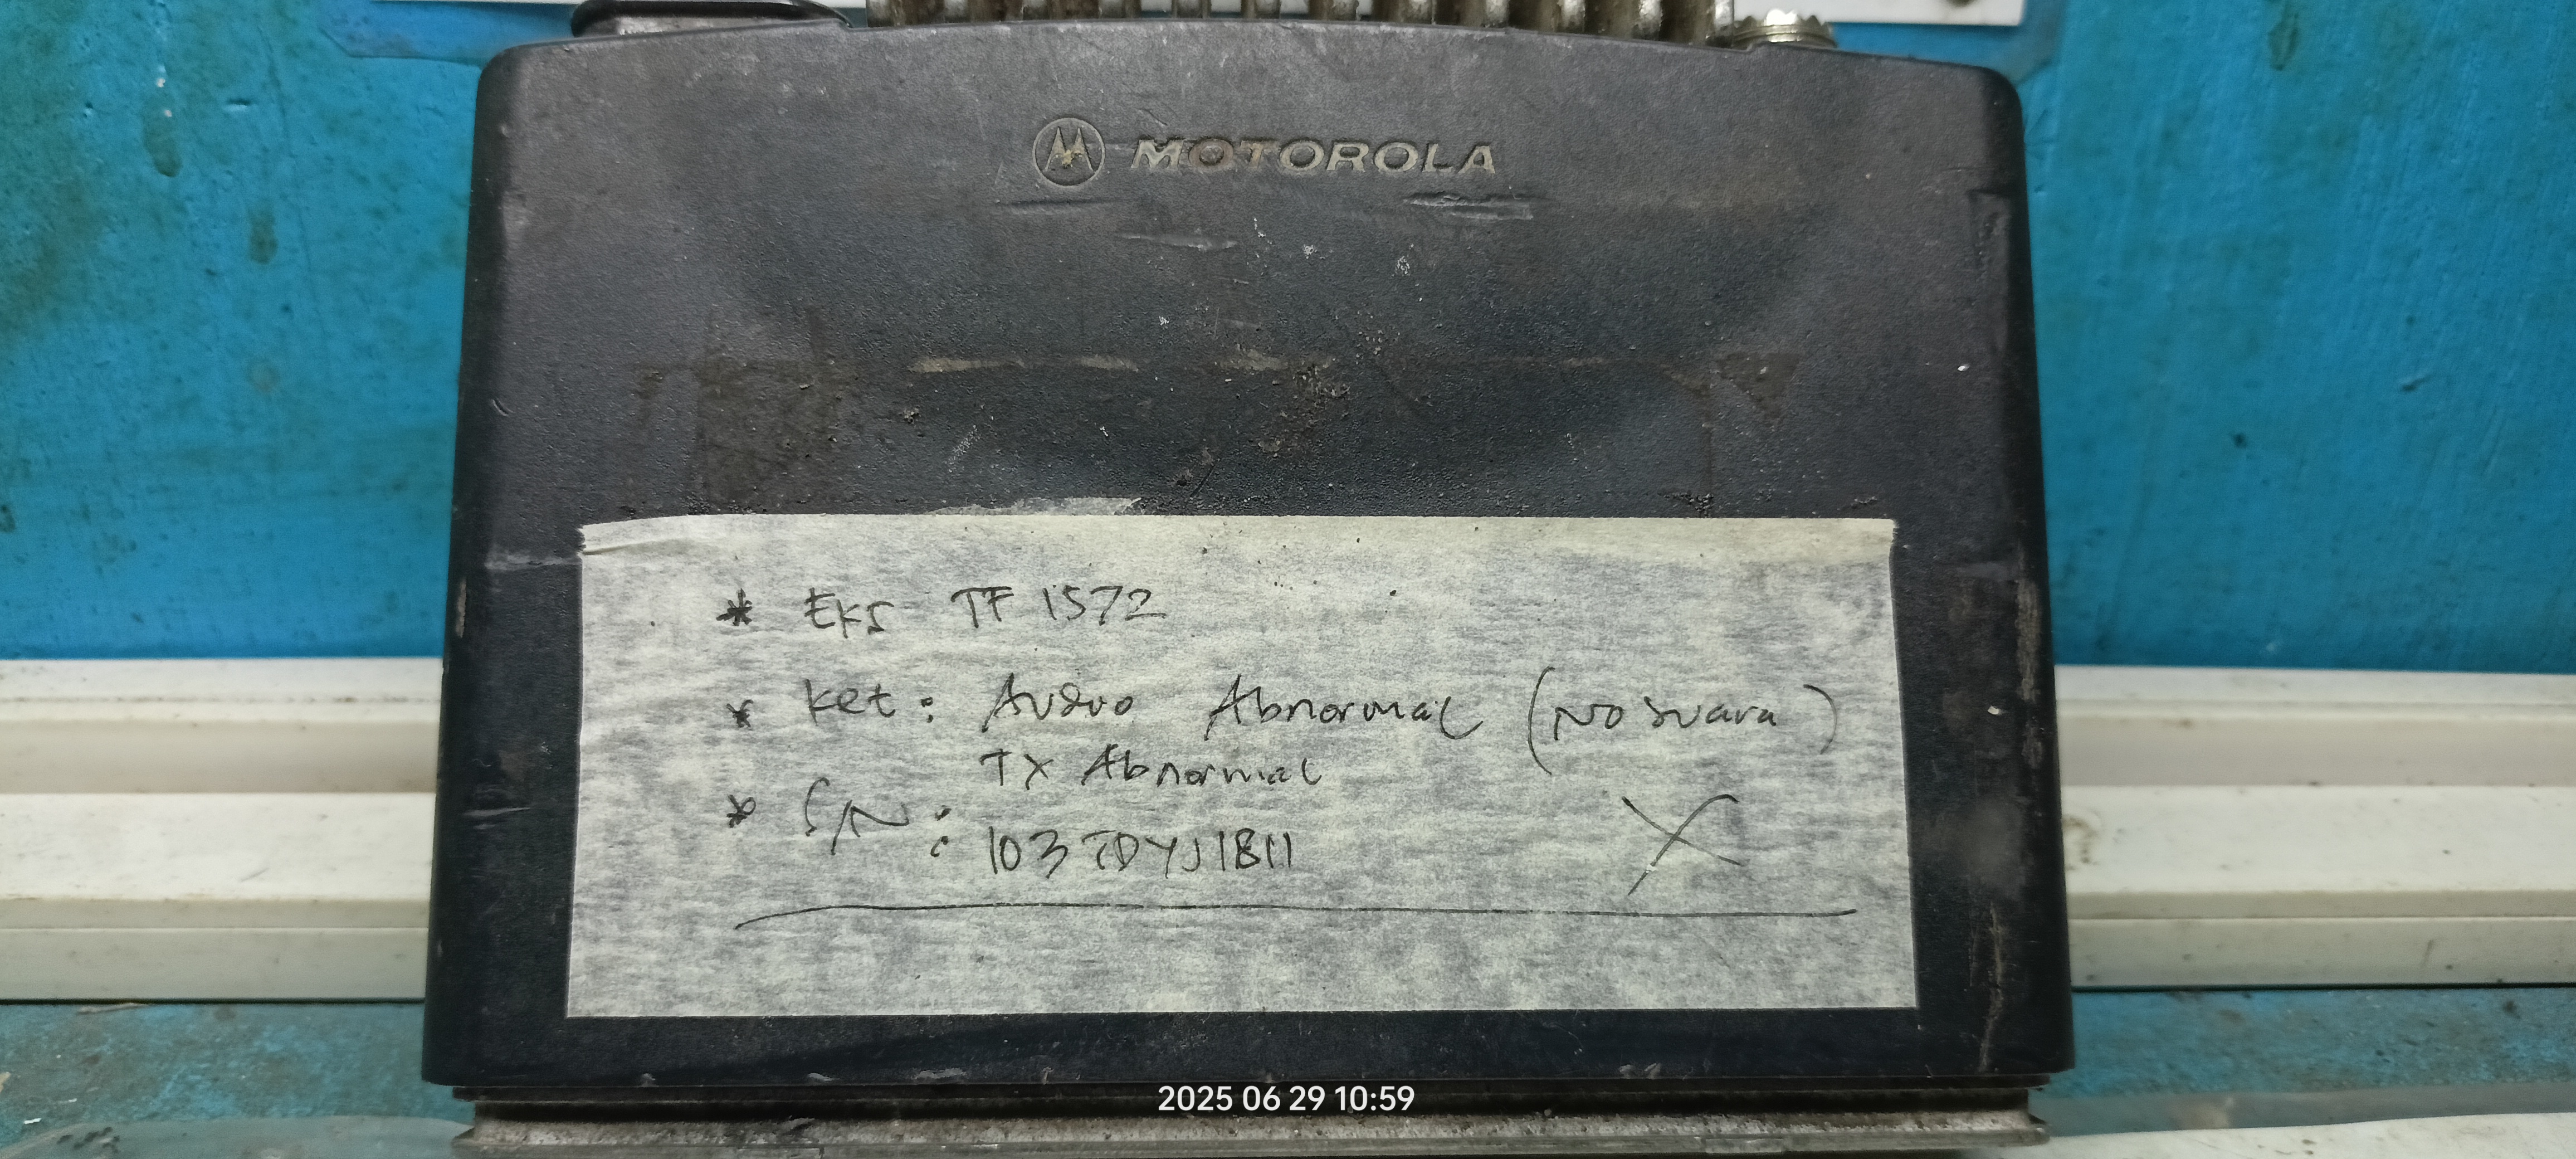 MOTOROLA
* EKS TF 1572
* Ket : Audio Abnormal (No suara)
TX Abnormal
* S/N : 103TDYJ1B11
X
2025 06 29 10:59